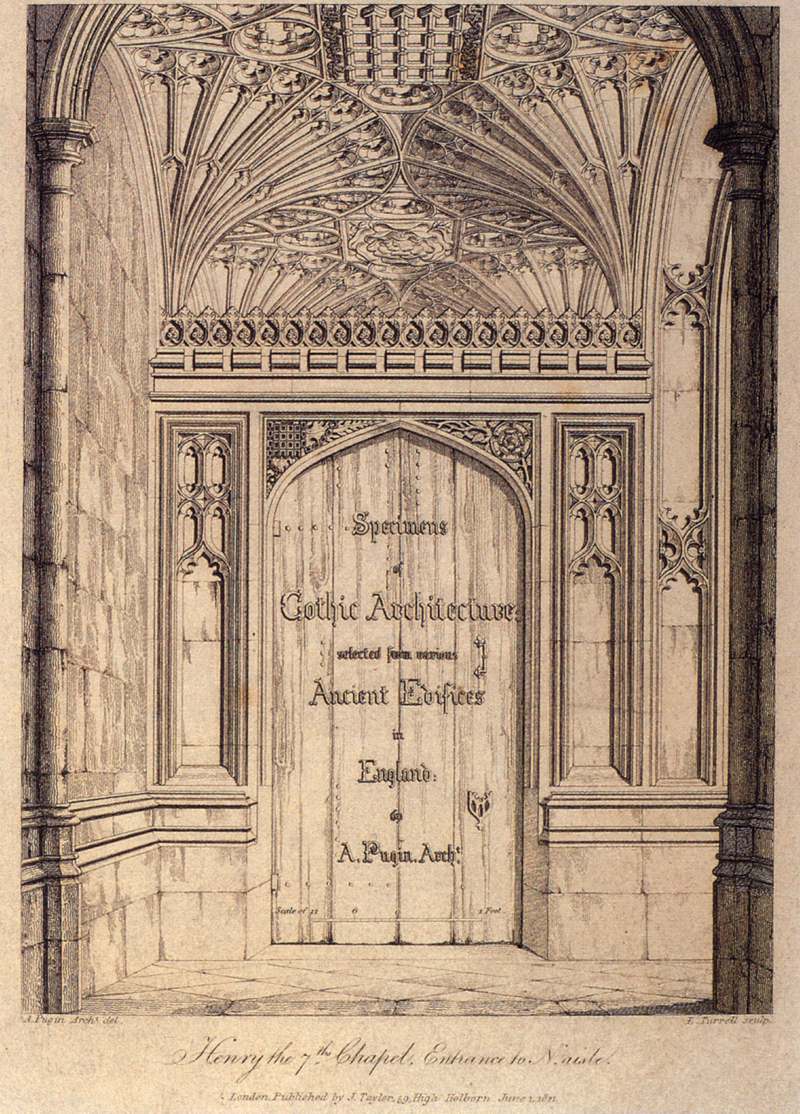 Specimens
of
Gothic Architecture;
selected from various
Ancient Edifices
in
England:
by
A. Pugin. Archt.
Scale of 12 6 2 Feet
A. Pugin Archt. del.
E. Turrell sculp.
Henry the 7th. Chapel, Entrance to N. aisle.
London, Published by J. Taylor, 59, High Holborn June 1,